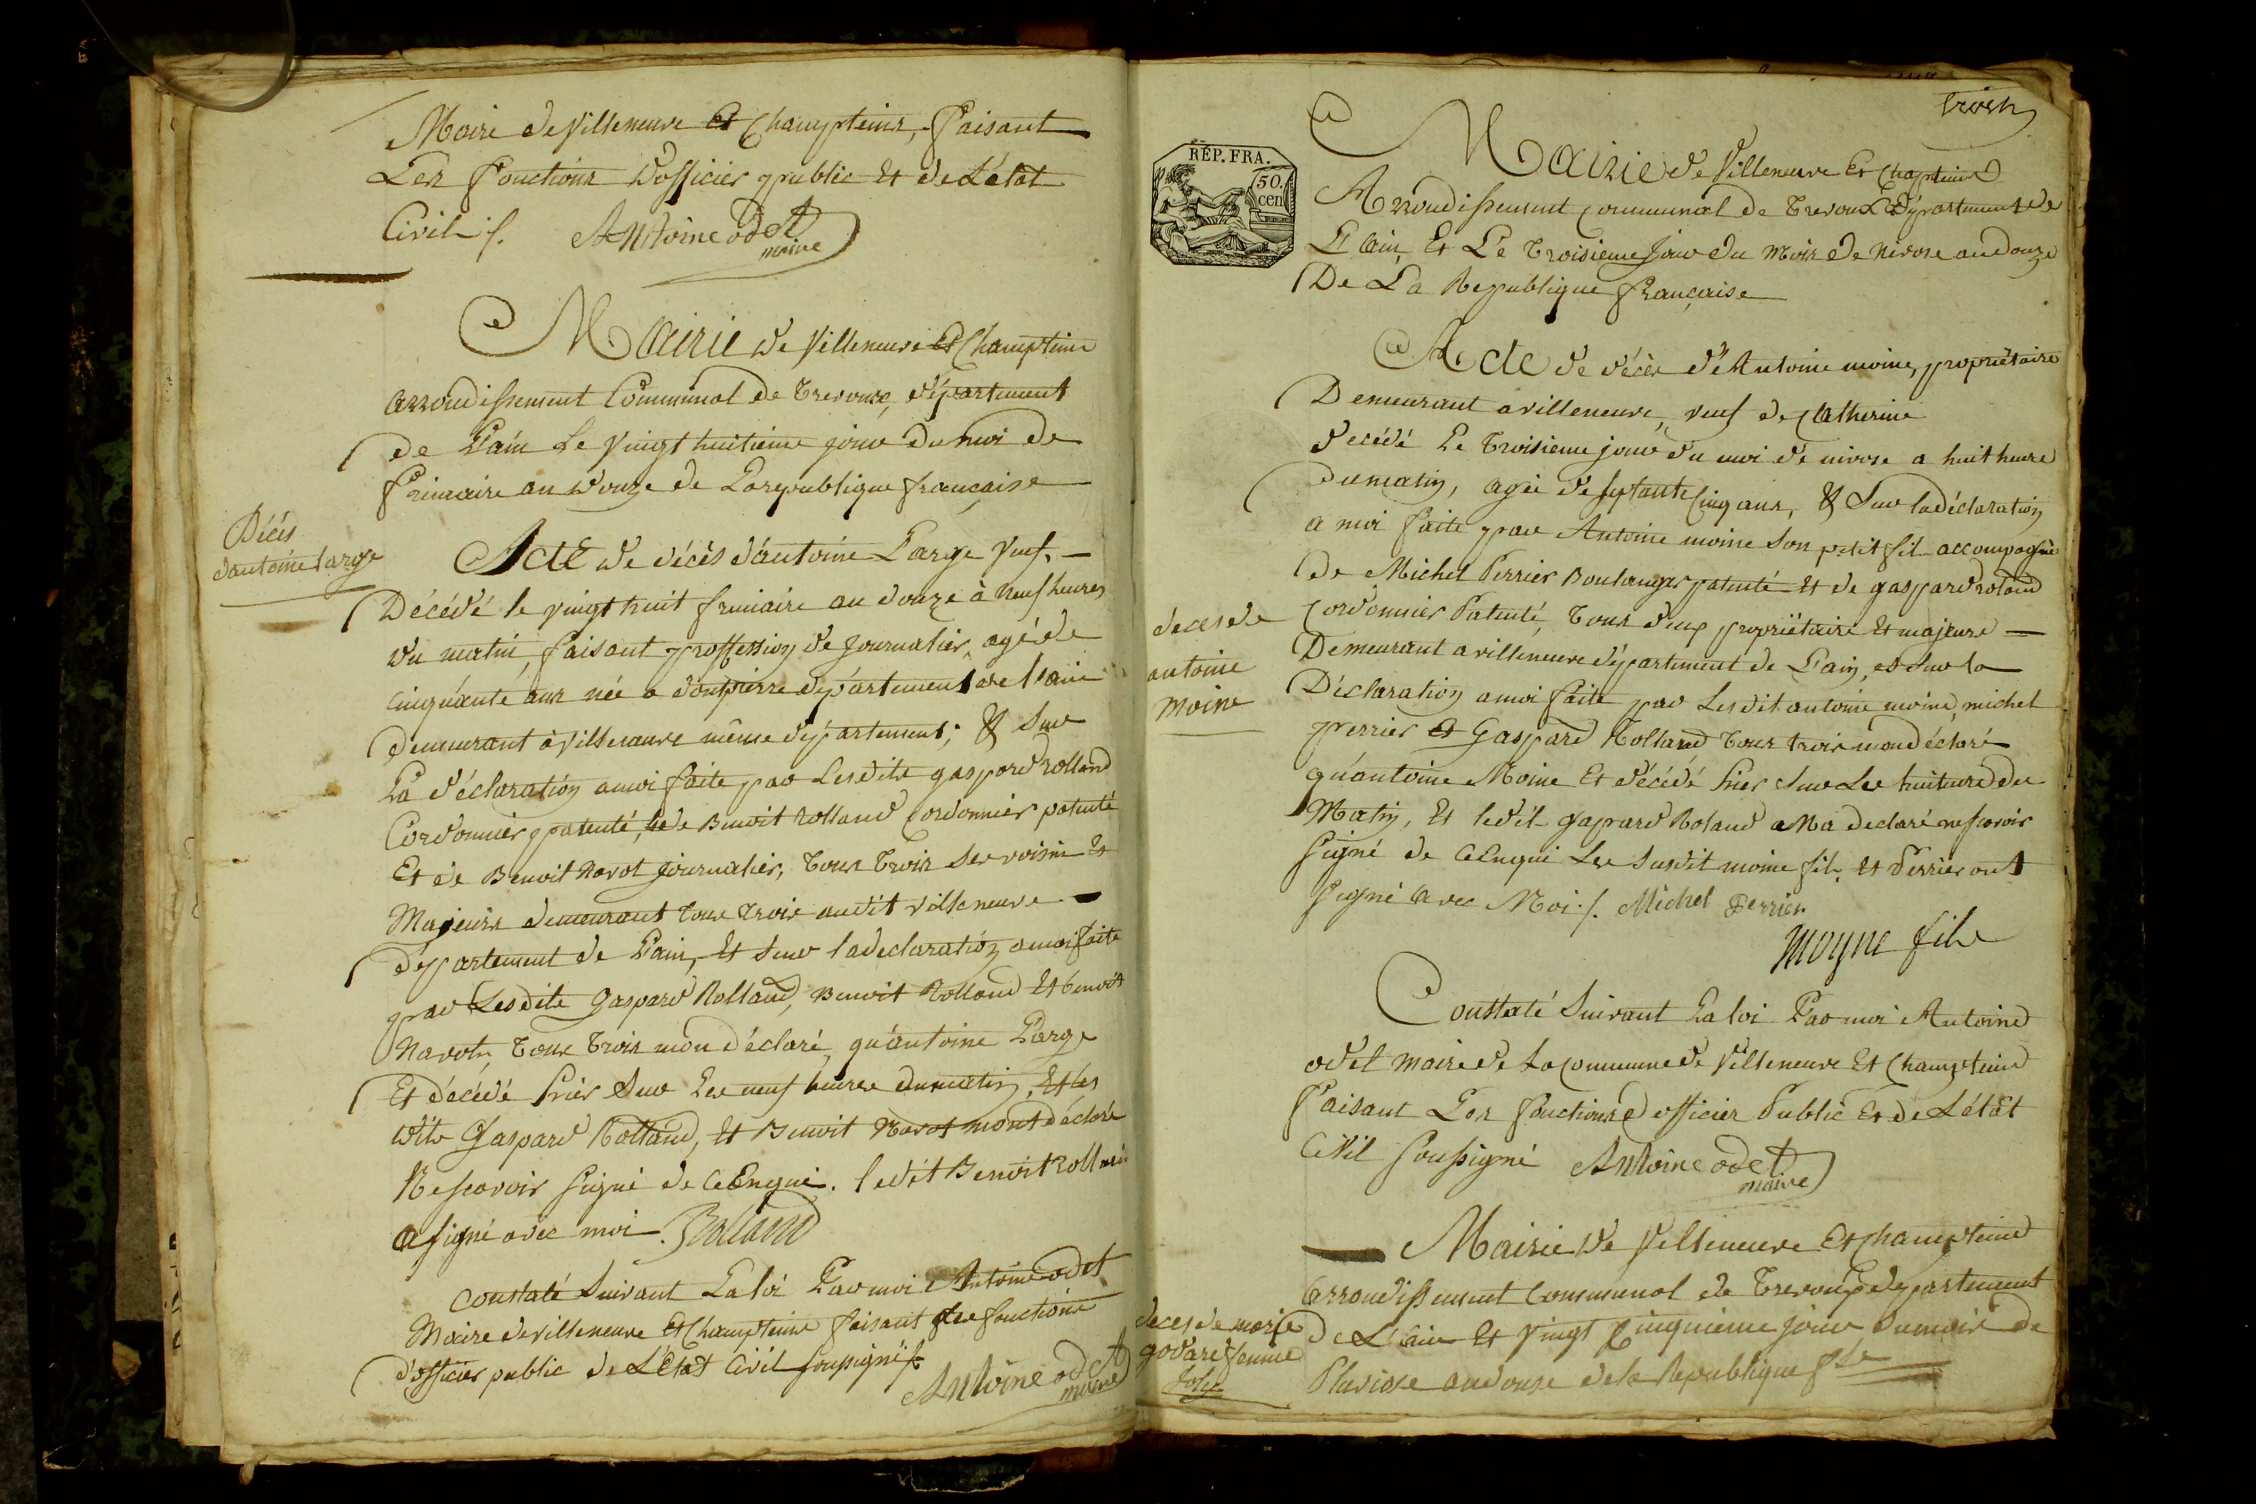 Maire de Villeneuve Et Champteins, faisant
Les fonctions d'officier public Et de L'état
Civil ./.
Antoine odet
maire
Mairie de Villeneuve Et Champteins
arrondissement Communal de trevoux, département
de L'ain Le vingt huitième jour du moi de
frimaire an douze de La republique française
Décés
d'antoine Large
Acte de décès d'antoine Large veuf. —
Décédé le vingt huit frimaire an douze à neuf heures
du matin, faisant proffession de journalier, agé de
cinquante ans née a dompierre département de l'ain
demeurant à villeneuve même département; & Sur
La déclaration a moi faite par Lesdits gaspard rolland
Cordonnier patenté, de Benoit rolland Cordonnier patenté
Et de Benoit Navot journalier, tous trois ses voisins Et
Majeurs demeurant tous trois audit villeneuve —
département de L'ain, Et Sur la declaration a moi faite
par Lesdits Gaspard Rolland, Benoit Rolland Et benoit
Navot, tous trois mon déclaré, qu'antoine Large
Et décédé hier Sur Les neuf heures du matin, Et les
dits Gaspard Rolland, Et Benoit Navot m'ont déclaré
Ne savoir signé de ce Enquis. ledit Benoit Rolland
a signé avec moi. Rolland
constaté Suivant La loi Par moi Antoine odet
Maire de villeneuve Et Champteins faisant Les fonctions
d'officier public de L'état Civil soussigné ./.
Antoine odet
maire
trois
RÉP. FRA.
50.
cen
Mairie de Villeneuve Et Chapteins
Arrondissement Communal de trevoux Département de
L'ain, Et Le troisieme jour du Mois de nivose an douze
De La Republique française
Acte de décès d'Antoine moine, propriétaire
Demeurant a villeneuve, veuf de Catherine
decédé Le troisieme jour du moi de nivose a huit heure
du matin, agée de septante Cinq ans, & Sur la déclaration
a moi faite par Antoine moine son petit fil accompagné
de Michel Perrier Boulanger patenté Et de gaspard roland
Cordonnier Patenté, tous deux propriëtaire Et majeure —
Demeurant a villeneuve département de L'ain, et Sur la
Déclaration a moi faite par Lesdit antoine moine, michel
perrier Et Gaspard Rolland tous trois mon déclaré
qu'antoine Moine Et décédé hier Sur Les huit heure du
Matin, Et ledit gaspard Roland a Ma declaré ne savoir
signé de ce Enquis Les susdit moine fils Et Perrier ont
signé avec Moi ./. Michel Perrier
moyne fils
deces de
antoine
moine
Constaté Suivant La loi Par moi Antoine
odet maire de La commune de Villeneuve Et Champteins
faisant Les fonctions d'officier Public Et de L'état
Civil soussigné
Antoine odet
maire
Mairie de Villeneuve Et Champteins
arrondissement Communal de trevoux département
de L'ain Et Vingt Cinquieme jour du mois de
Pluviose an douze de la Republique fse
deces de marie
godard femme